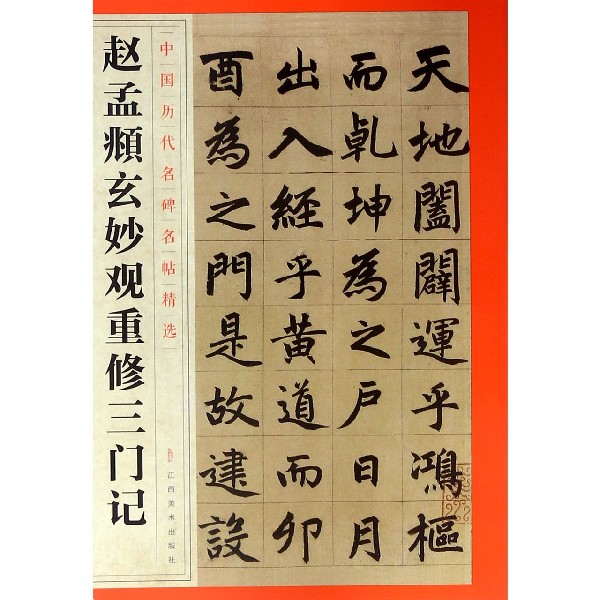 天地闔闢運乎鴻樞
而乹坤為之戶日月
出入經乎黄道而卯
酉為之門是故建設
中国历代名碑名帖精选
赵孟頫玄妙观重修三门记
江西美术出版社